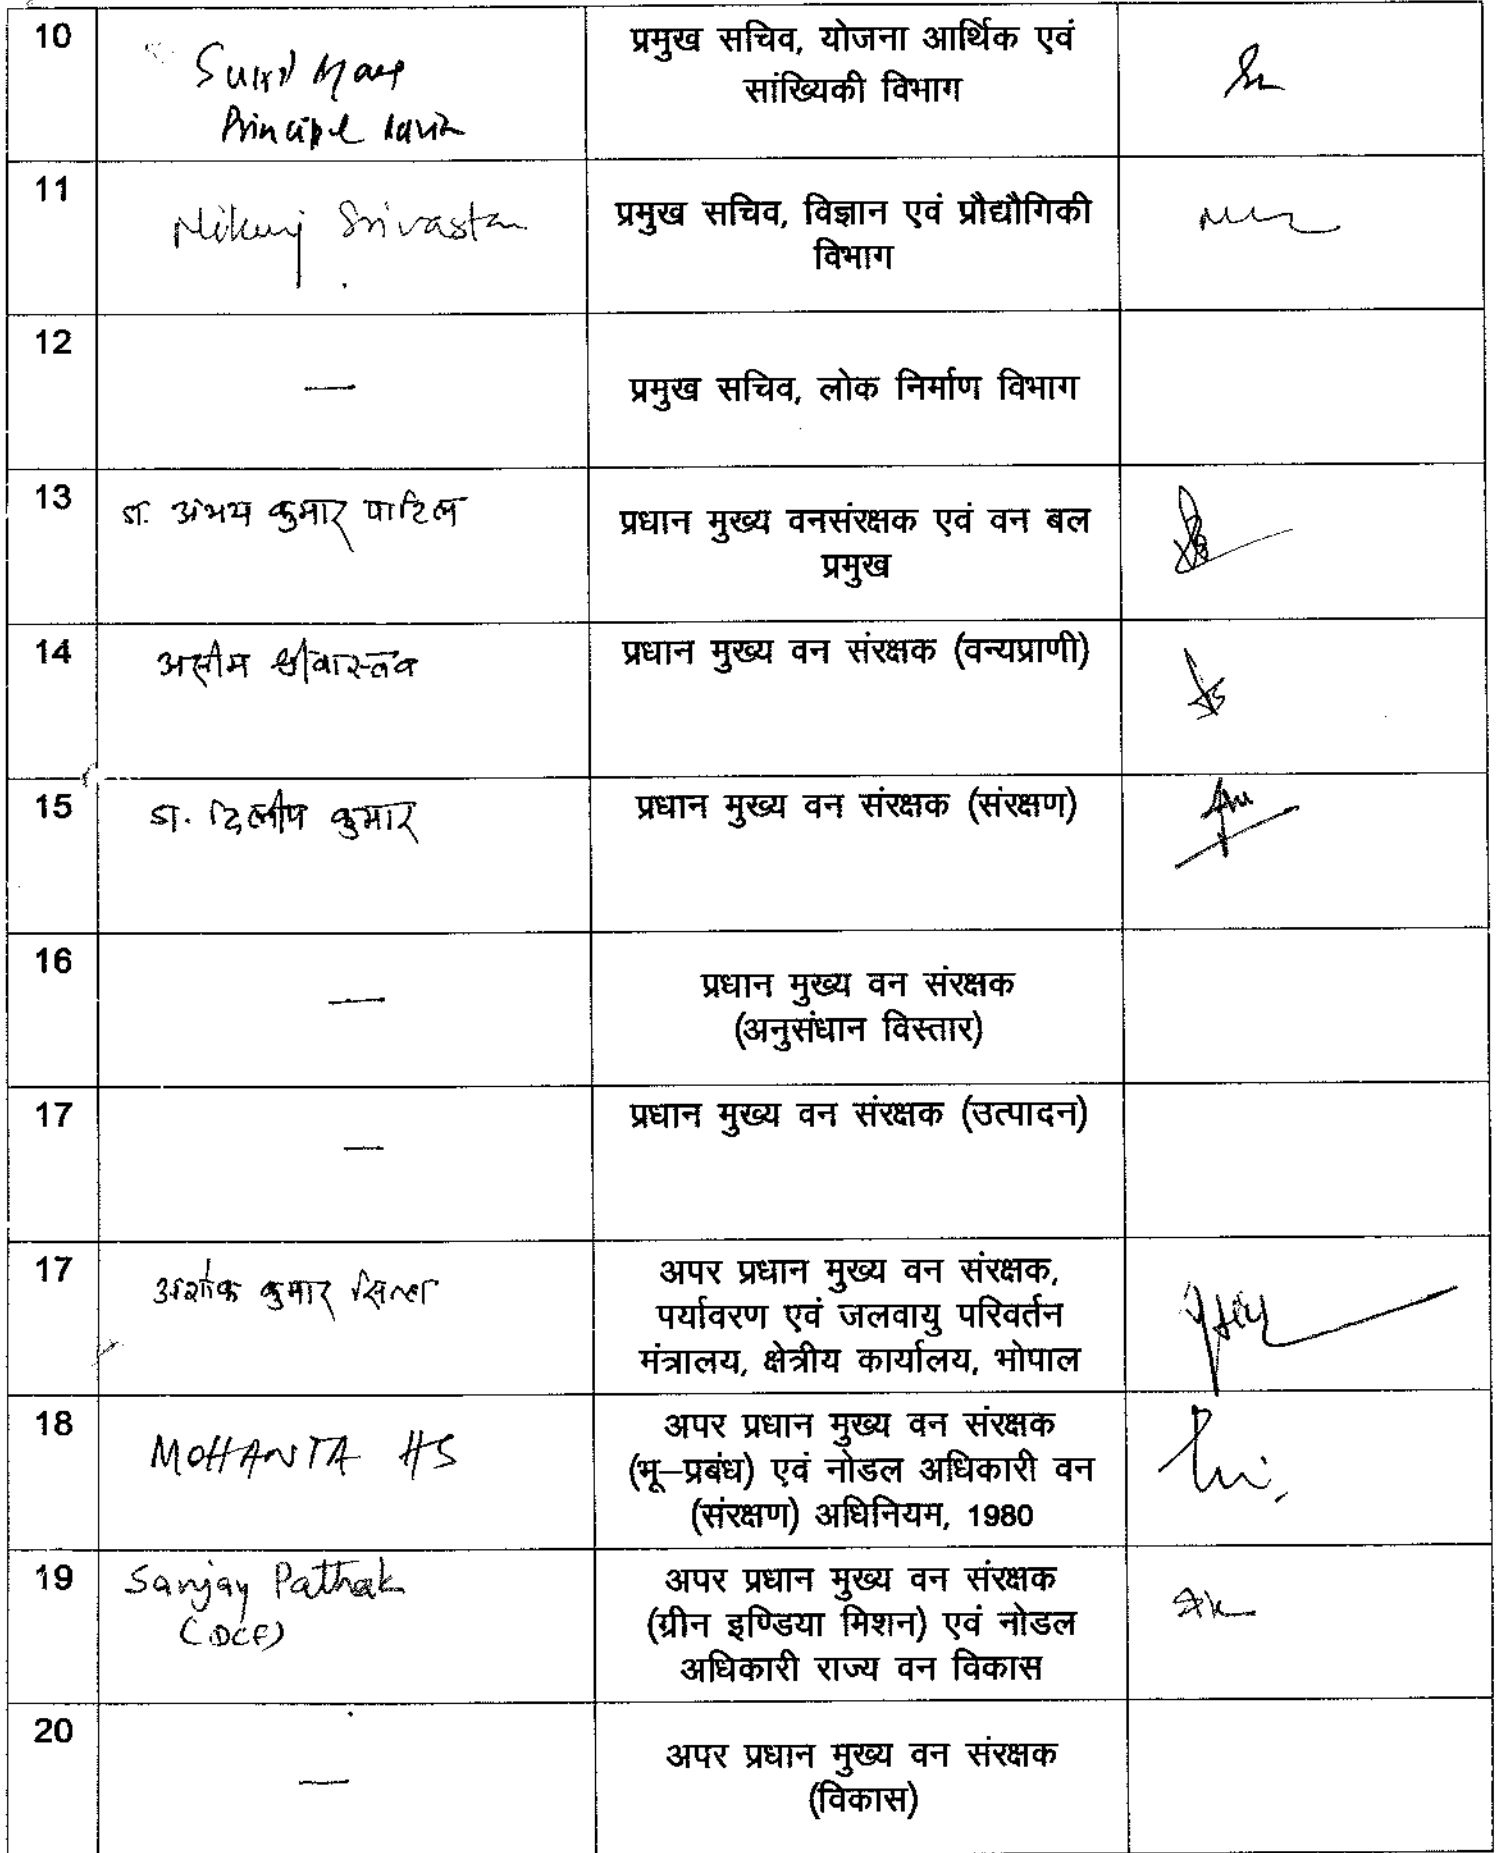 10
Principal
प्रमुख सचिव, योजना आर्थिक एवं
सांख्यिकी विभाग
11
Nikunj Srivastava
प्रमुख सचिव, विज्ञान एवं प्रौद्यौगिकी
विभाग
12
—
प्रमुख सचिव, लोक निर्माण विभाग
13
डा. अभय कुमार पाटिल
प्रधान मुख्य वनसंरक्षक एवं वन बल
प्रमुख
14
असीम श्रीवास्तव
प्रधान मुख्य वन संरक्षक (वन्यप्राणी)
15
डा. दिलीप कुमार
प्रधान मुख्य वन संरक्षक (संरक्षण)
16
—
प्रधान मुख्य वन संरक्षक
(अनुसंधान विस्तार)
17
—
प्रधान मुख्य वन संरक्षक (उत्पादन)
17
अशोक कुमार
अपर प्रधान मुख्य वन संरक्षक,
पर्यावरण एवं जलवायु परिवर्तन
मंत्रालय, क्षेत्रीय कार्यालय, भोपाल
18
MOHANTA HS
अपर प्रधान मुख्य वन संरक्षक
(भू–प्रबंध) एवं नोडल अधिकारी वन
(संरक्षण) अधिनियम, 1980
19
Sanjay Pathak
(DCF)
अपर प्रधान मुख्य वन संरक्षक
(ग्रीन इण्डिया मिशन) एवं नोडल
अधिकारी राज्य वन विकास
20
—
अपर प्रधान मुख्य वन संरक्षक
(विकास)